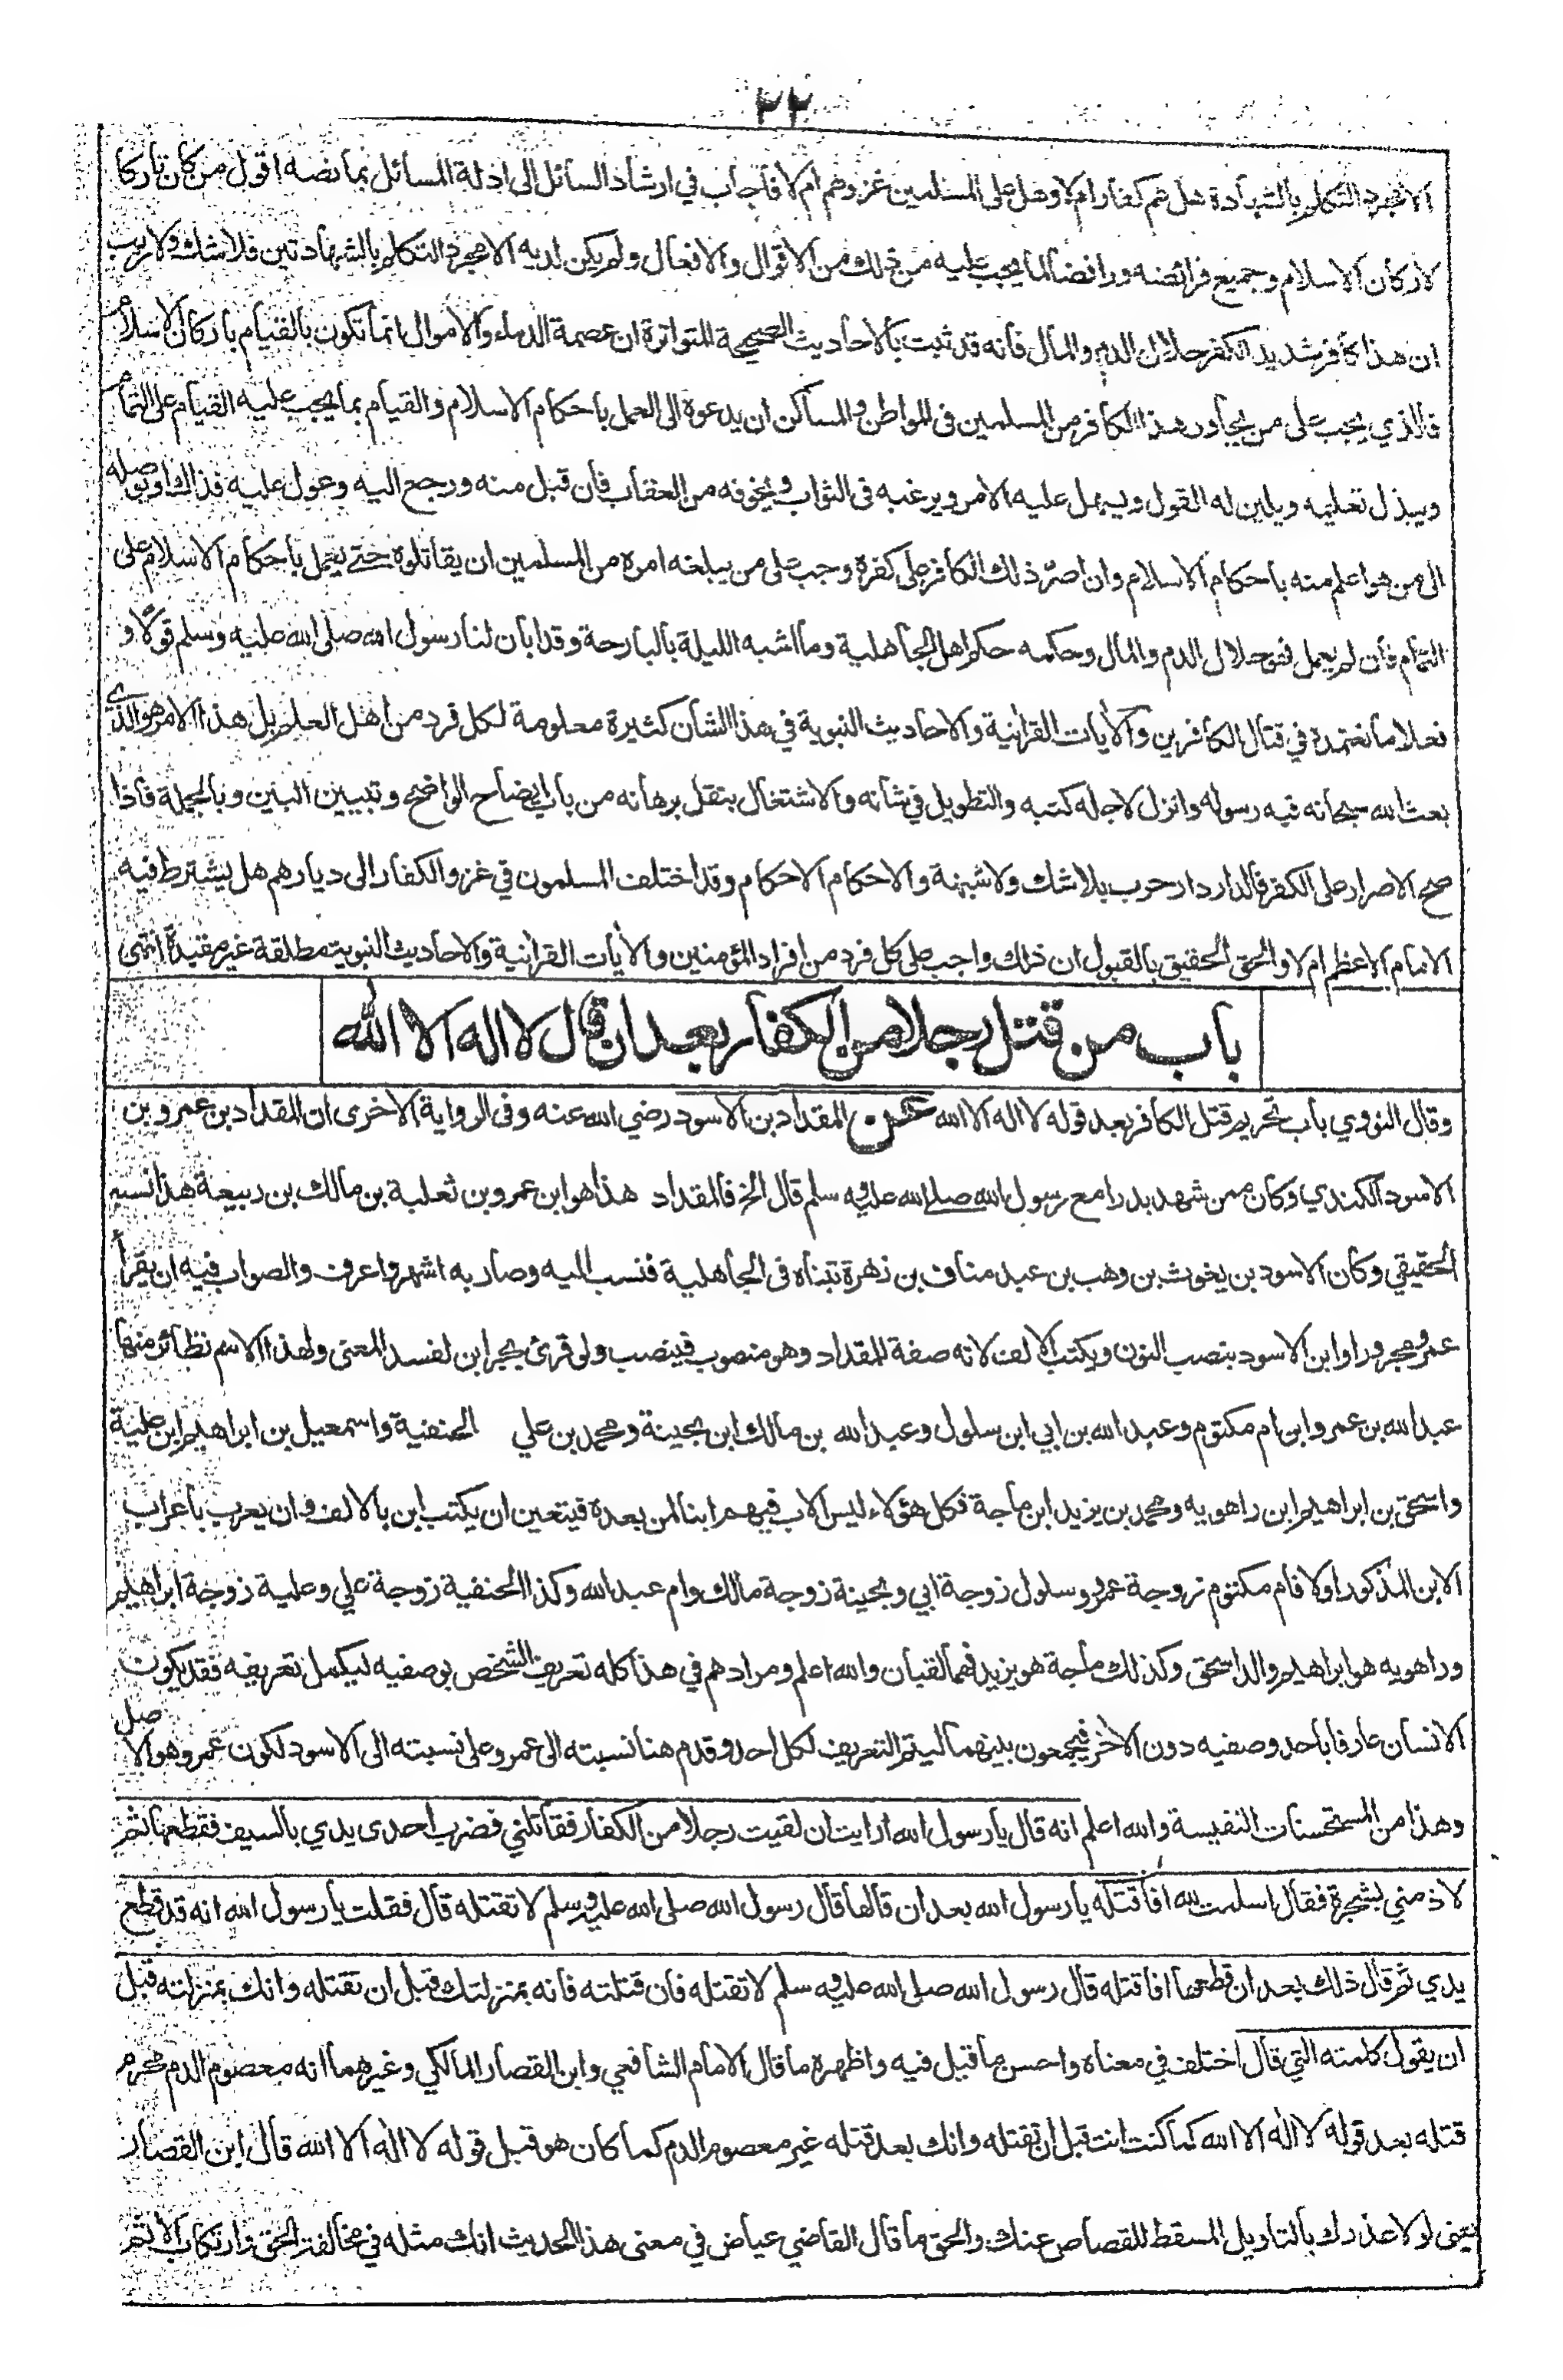 ٣٢
الا مجرد التكلم بالشهادة هل هم كفار ام لا وهل على المسلمين غزوهم ام لا فاجاب في ارشاد السائل الى ادلة المسائل بما نصه اقول من كان تاركا
لاركان الاسلام وجميع فرائضه ورافضا لما يجب عليه من ذلك من الاقوال والافعال ولم يكن لديه الا مجرد التكلم بالشهادتين فلا شك ولا ريب
ان هذا كافر شديد الكفر حلال الدم والمال فانه قد ثبت بالاحاديث الصحيحة المتواترة ان عصمة الدماء والاموال انما تكون بالقيام باركان الاسلام
فالذي يجب على من يجاور هذا الكافر من المسلمين في المواطن والمساكن ان يدعوه الى العمل باحكام الاسلام والقيام بما يجب عليه القيام على التمام
ويبذل تعليمه ويلين له القول ويسهل عليه الامر ويرغبه في الثواب ويخوفه من العقاب فان قبل منه ورجع اليه وعول عليه فذاك او يوصله
الى من هو اعلم منه باحكام الاسلام وان اصر ذلك الكافر على كفره وجب على من يبلغه امره من المسلمين ان يقاتلوه حتى يعمل باحكام الاسلام على
التمام فان لم يعمل فهو حلال الدم والمال وحكمه حكم اهل الجاهلية وما اشبه الليلة بالبارحة وقد ابان لنا رسول الله صلى الله عليه وسلم قولا و
فعلا ما نعتمده في قتال الكافرين والآيات القرآنية والاحاديث النبوية في هذا الشان كثيرة معلومة لكل فرد من اهل العلم بل هذا الامر هو الذي
بعث الله سبحانه فيه رسوله وانزل لاجله كتبه والتطويل في شانه والاشتغال بنقل برهانه من باب ايضاح الواضح وتبيين البين وبالجملة فاذا
صح الاصرار على الكفر فالدار دار حرب بلا شك ولا شبهة والاحكام الاحكام وقد اختلف المسلمون في غزو الكفار الى ديارهم هل يشترط فيه
الامام الاعظم ام لا والحق الحقيق بالقبول ان ذلك واجب على كل فرد من افراد المؤمنين والآيات القرآنية والاحاديث النبوية مطلقة غير مقيدة انتهى
باب من قتل رجلا من الكفار بعد ان قال لا اله الا الله
وقال النووي باب تحريم قتل الكافر بعد قوله لا اله الا الله عن المقداد بن الاسود رضي الله عنه وفي الرواية الاخرى ان المقداد بن عمرو بن
الاسود الكندي وكان ممن شهد بدرا مع رسول الله صلى الله عليه وسلم قال الخ فالمقداد هذا هو ابن عمرو بن ثعلبة بن مالك بن ربيعة هذا نسبه
الحقيقي وكان الاسود بن يغوث بن وهب بن عبد مناف بن زهرة تبناه في الجاهلية فنسب اليه وصار به اشهر واعرف والصواب فيه ان يقرأ
عمرو مجرورا وابن الاسود بنصب النون ويكتب بالالف لانه صفة للمقداد وهو منصوب فينصب ولو قرئ بجر ابن لفسد المعنى ولهذا الاسم نظائر منها
عبد الله بن عمرو ابن ام مكتوم وعبد الله بن ابي ابن سلول وعبد الله بن مالك ابن بحينة ومحمد بن علي الحنفية واسمعيل بن ابراهيم ابن علية
واسحق بن ابراهيم ابن راهويه ومحمد بن يزيد ابن ماجة فكل هؤلاء ليس الاب فيهم ابنا لمن بعده فيتعين ان يكتب ابن بالالف وان يعرب باعراب
الابن المذكور اولا فام مكتوم زوجة عمرو وسلول زوجة ابي وبحينة زوجة مالك وام عبد الله وكذا الحنفية زوجة علي وعلية زوجة ابراهيم
وراهويه هو ابراهيم والد اسحق وكذلك ماجة هو يزيد فهما لقبان والله اعلم ومرادهم في هذا كله تعريف الشخص بوصفيه ليكمل تعريفه فقد يكون
الانسان عارفا باحد وصفيه دون الآخر فيجمعون بينهما ليتم التعريف لكل احد وقدم هنا نسبته الى عمرو على نسبته الى الاسود لكون عمرو هو الاصل
وهذا من المستحسنات النفيسة والله اعلم انه قال يا رسول الله ارايت ان لقيت رجلا من الكفار فقاتلني فضرب احدى يدي بالسيف فقطعها ثم
لاذ مني بشجرة فقال اسلمت لله افاقتله يا رسول الله بعد ان قالها قال رسول الله صلى الله عليه وسلم لا تقتله قال فقلت يا رسول الله انه قد قطع
يدي ثم قال ذلك بعد ان قطعها افاقتله قال رسول الله صلى الله عليه وسلم لا تقتله فان قتلته فانه بمنزلتك قبل ان تقتله وانك بمنزلته قبل
ان يقول كلمته التي قال اختلف في معناه واحسن ما قيل فيه واظهره ما قال الامام الشافعي وابن القصار المالكي وغيرهما انه معصوم الدم محرم
قتله بعد قوله لا اله الا الله كما كنت انت قبل ان تقتله وانك بعد قتله غير معصوم الدم كما كان هو قبل قوله لا اله الا الله قال ابن القصار
يعني لولا عذرك بالتاويل المسقط للقصاص عنك والحق ما قال القاضي عياض في معنى هذا الحديث انك مثله في مخالفة الحق وارتكاب الاثم